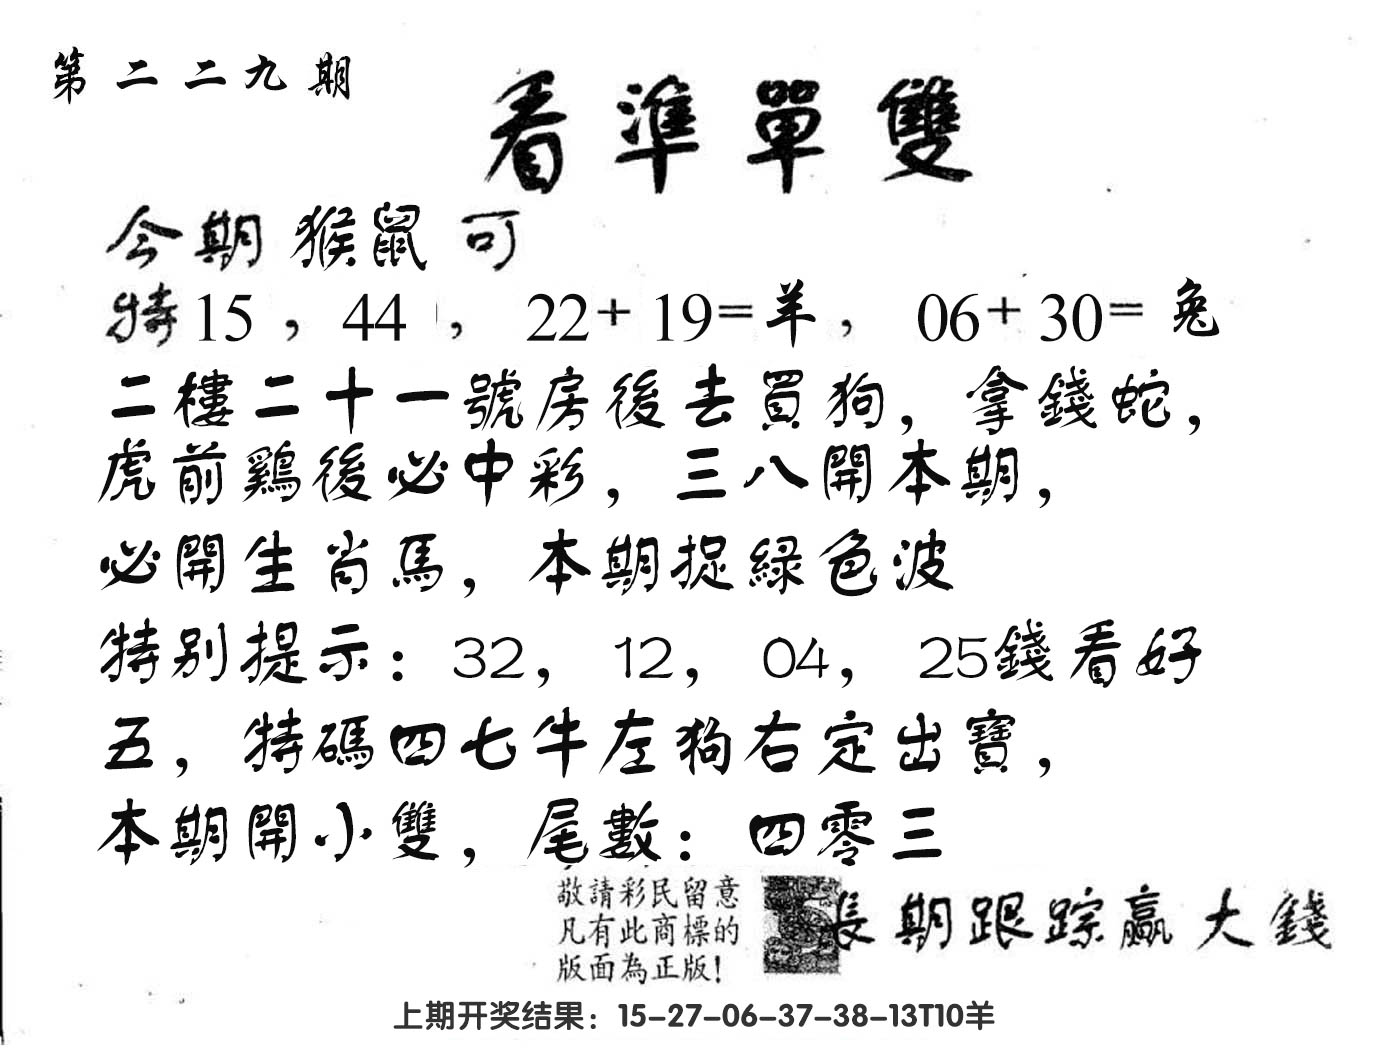 第二二九期
看準單雙
今期猴鼠可
特15，44，22+19=羊，06+30=兔
二樓二十一號房後去買狗，拿錢蛇，
虎前鷄後必中彩，三八開本期，
必開生肖馬，本期捉綠色波
特别提示：32，12，04，25錢看好
五，特碼四七牛左狗右定出寶，
本期開小雙，尾數：四零三
敬請彩民留意
凡有此商標的
版面為正版！
長期跟踪贏大錢
上期开奖结果：15-27-06-37-38-13T10羊